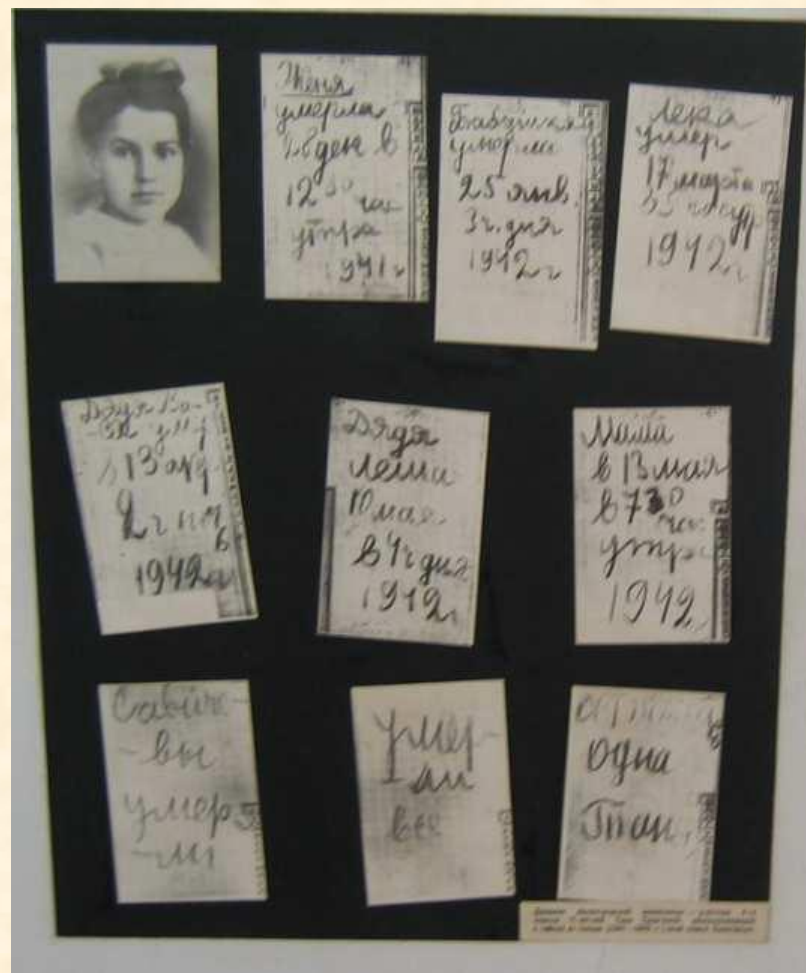 Женя
умерла
28 дек в
12 30 час
утра
1941 г
Бабушка
умерла
25 янв.
3 ч. дня
1942 г
Лека
умер
17 марта
в 5 час утр
1942 г
Дядя Ва-
-ся ум
в 13 апр
2 ч ноч
1942 г
Дядя
Леша
10 мая
в 4 ч дня
1942 г
Мама
в 13 мая
в 7 30 час
утра
1942
Савиче-
-вы
умер
-ли
умер-
-ли
все
одна
Таня